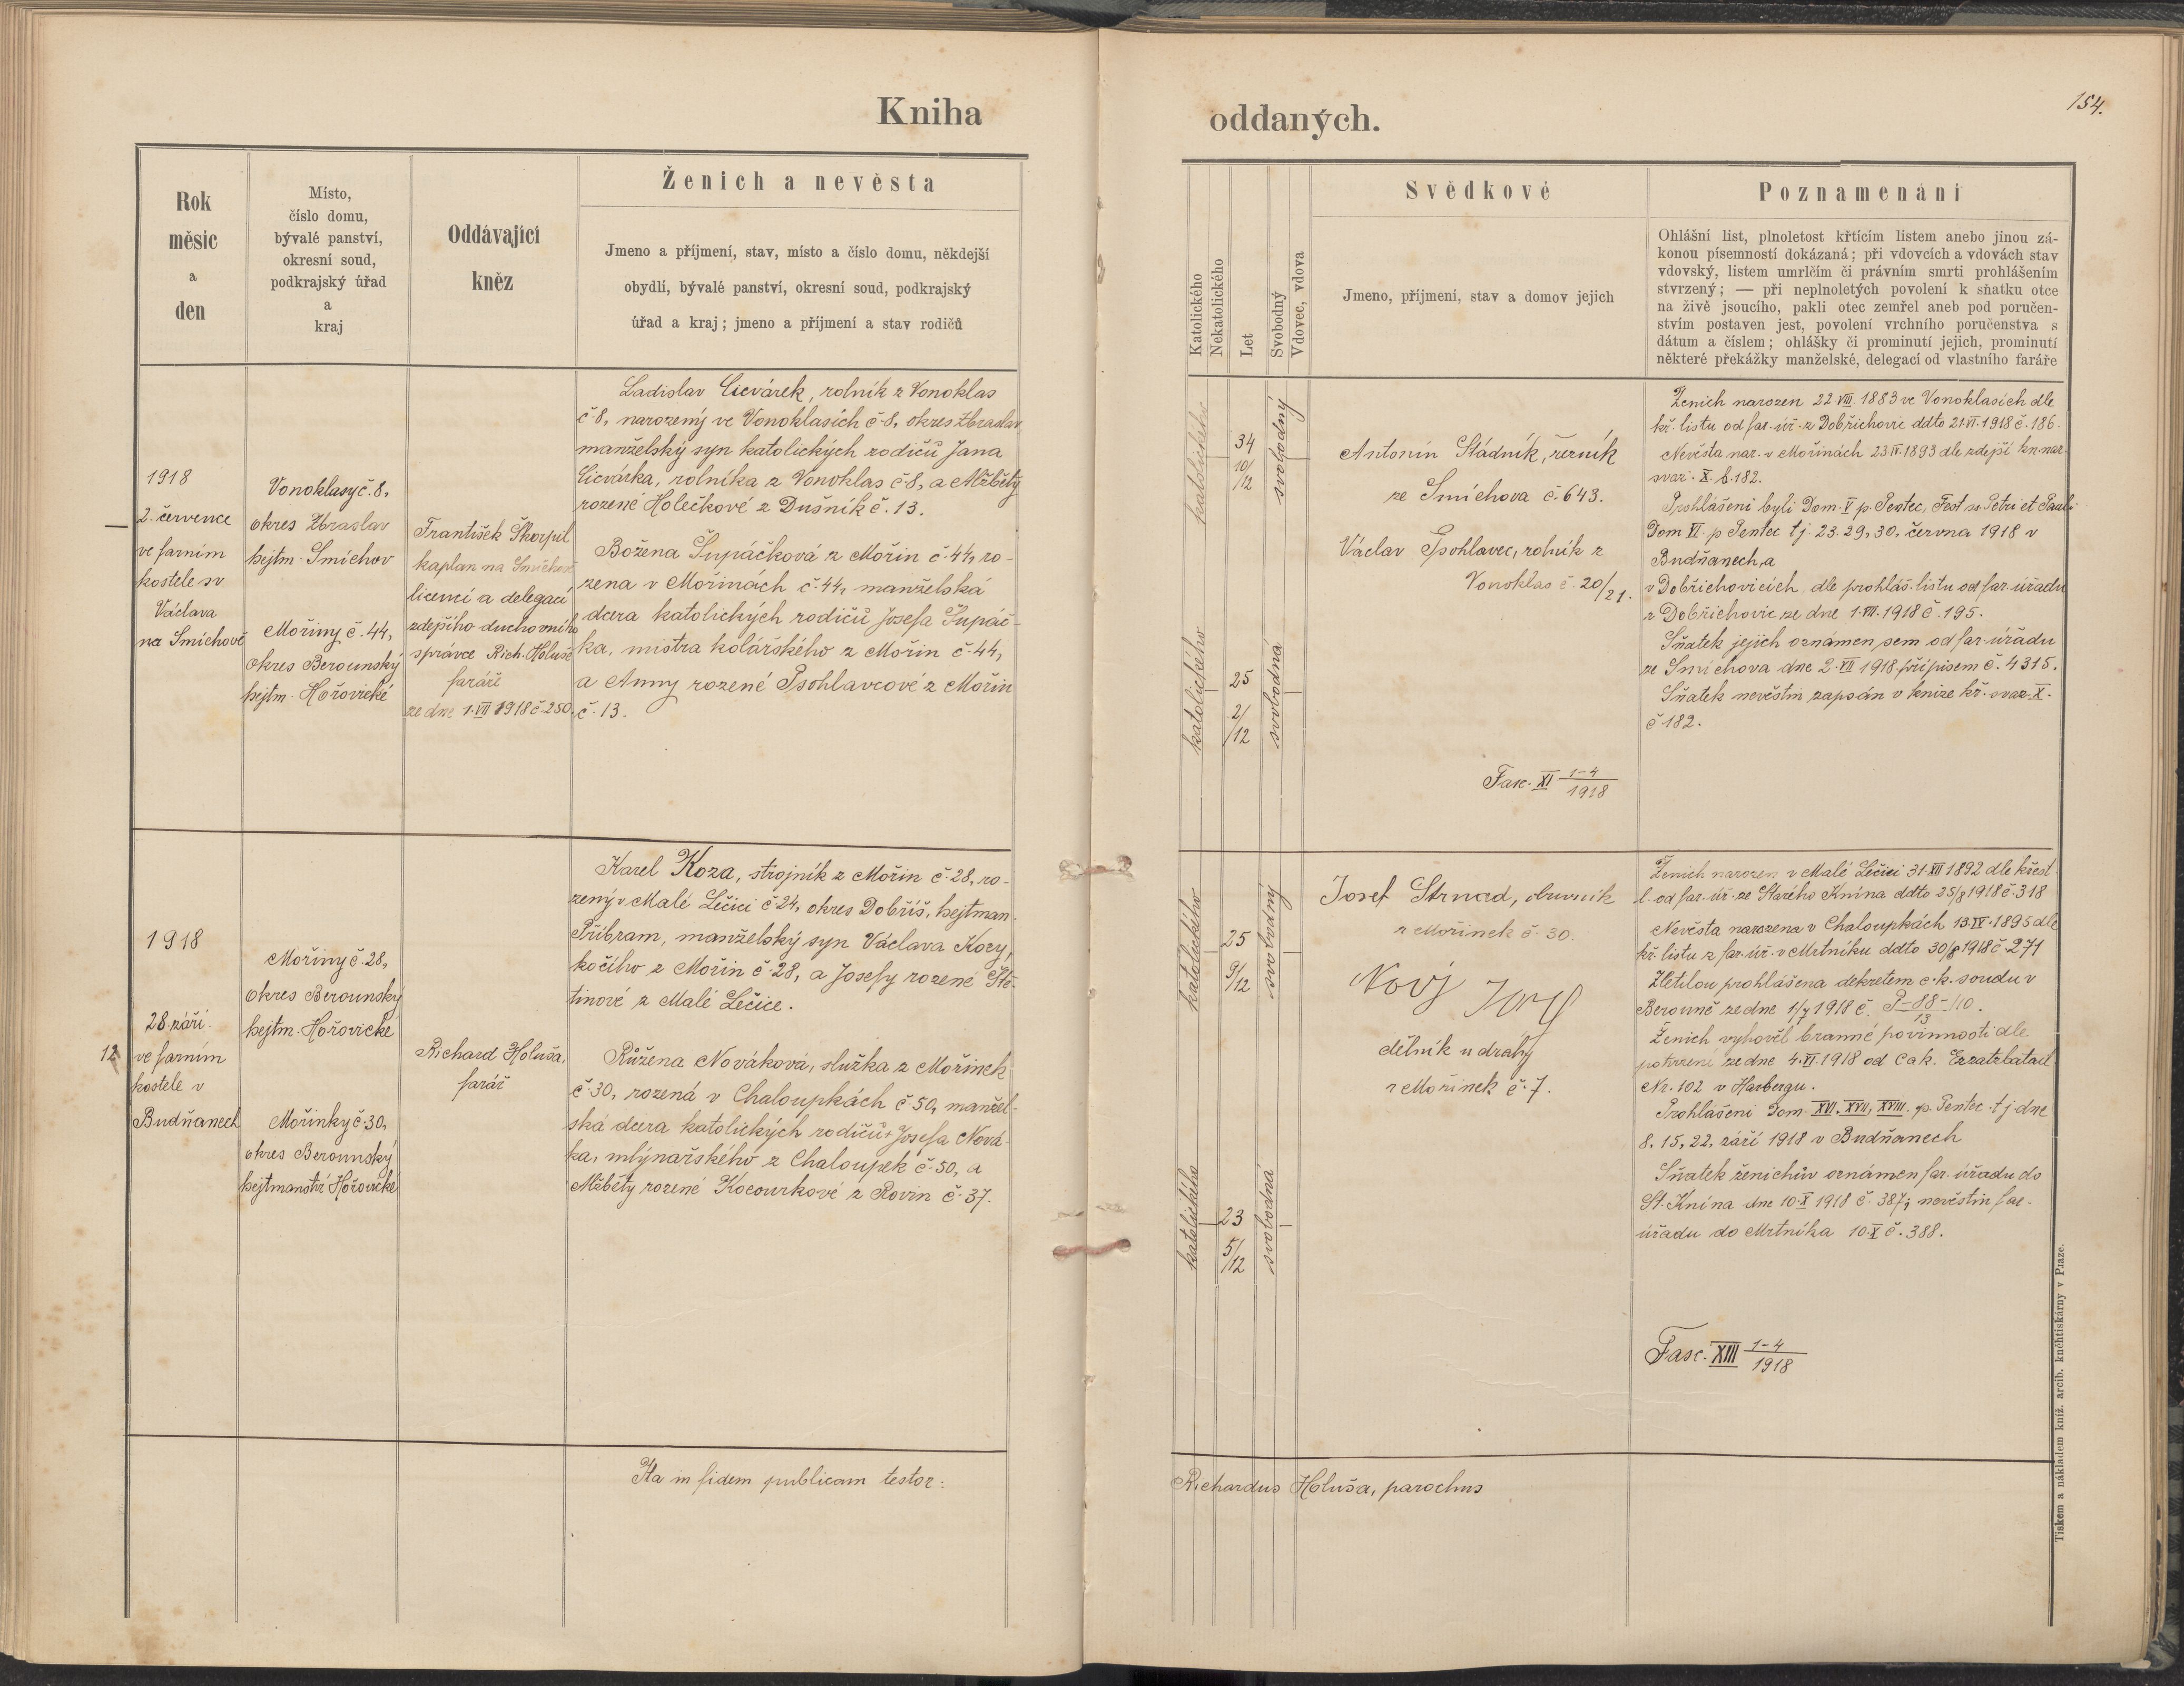 Kniha
oddaných.
154.
Rok
měsíc
a
den
Místo,
číslo domu,
bývalé panství,
okresní soud,
podkrajský úřad
a
kraj
Oddávající
kněz
Ženich a nevěsta
Jmeno a příjmení, stav, místo a číslo domu, někdejší
obydlí, bývalé panství, okresní soud, podkrajský
úřad a kraj; jmeno a příjmení a stav rodičů
Katolického
Nekatolického
Let
Svobodný
Vdovec, vdova
Svědkové
Jmeno, příjmení, stav a domov jejich
Poznamenání
Ohlášní list, plnoletost křtícím listem anebo jinou zá-
konou písemností dokázaná; při vdovcích a vdovách stav
vdovský, listem umrlčím či právním smrti prohlášením
stvrzený; — při neplnoletých povolení k sňatku otce
na živě jsoucího, pakli otec zemřel aneb pod poručen-
stvím postaven jest, povolení vrchního poručenstva s
dátum a číslem; ohlášky či prominutí jejich, prominutí
některé překážky manželské, delegací od vlastního faráře
1918
2. července
ve farním
kostele sv
Václava
na Smíchově
Vonoklasy č. 8,
okres Zbraslav
hejtm. Smíchov
Mořiny č. 44,
okres Berounský
hejtm. Hořovické
František Škorpil
kaplan na Smíchově
licencí a delegací
zdejšího duchovního
správce Rich. Holuše
faráře
ze dne 1.VII 1918 č 250.
Ladislav Cicvárek, rolník z Vonoklas
č. 8, narozený ve Vonoklasích č. 8, okres Zbraslav
manželský syn katolických rodičů Jana
Cicvárka, rolníka z Vonoklas č. 8, a Alžběty
rozené Holečkové z Dušník č. 13.
Božena Šupáčková z Mořin č. 44, ro-
zena v Mořinách č. 44, manželská
dcera katolických rodičů Josefa Šupáč-
ka, mistra kolářského z Mořin č. 44,
a Anny rozené Psohlavcové z Mořin
č. 13.
katolického
34
10/12
svobodný
katolického
25
2/12
svobodná
Antonín Stádník, řezník
ze Smíchova č. 643.
Václav Psohlavec, rolník z
Vonoklas č. 20/21.
Fasc. XI 1-4/1918
Ženich narozen 22.VIII.1883 ve Vonoklasích dle
kř. listu od far. úř. z Dobřichovic ddto 21.VI.1918 č. 186.
Nevěsta nar. v Mořinách 23.IV.1893 dle zdejší kn. nar.
svaz. X. f. 182.
Prohlášeni byli Dom. V p. Pentec, Fest ss. Petri et Pauli
Dom VI. p Pentec tj. 23. 29, 30, června 1918 v
Budňanech, a
v Dobřichovicích dle prohláš. listu od far. úřadu
z Dobřichovic ze dne 1.VII.1918 č. 195.
Sňatek jejich oznámen sem od far. úřadu
ze Smíchova dne 2.VII 1918 přípisem č. 4315.
Sňatek nevěstin zapsán v knize kř. svaz. X.
č 182.
12
1918
28. září
ve farním
kostele v
Budňanech
Mořiny č. 28,
okres Berounský
hejtm. Hořovické
Mořinky č. 30,
okres Berounský
hejtmanství Hořovické
Richard Holuša,
farář
Karel Koza, strojník z Mořin č. 28, ro-
zený v Malé Lečici č 24, okres Dobříš, hejtman.
Příbram, manželský syn Václava Kozy,
kočího z Mořin č. 28, a Josefy rozené Ště-
tinové z Malé Lečice.
Růžena Nováková, služka z Mořinek
č. 30, rozená v Chaloupkách č. 50, manžel-
ská dcera katolických rodičů + Josefa Nová-
ka, mlynářského z Chaloupek č. 50, a
Alžběty rozené Kocourkové z Rovin č. 37.
katolického
25
9/12
svobodný
katolického
23
5/12
svobodná
Josef Strnad, obuvník
z Mořinek č. 30.
Nový Josef
dělník u dráhy
z Mořinek č. 7.
Ženich narozen v Malé Lečici 31.XII 1892 dle křest.
l. od far. úř. ze Starého Knína ddto 25/8 1918 č. 318
Nevěsta narozena v Chaloupkách 13.IV.1895 dle
kř. listu z far. úř. v Mrtníku ddto 30/8 1918 č. 271
Zletilou prohlášena dekretem c. k. soudu v
Berouně ze dne 1/7 1918 č. P-88-/10.
13
Ženich vyhověl branné povinnosti dle
potvrzení ze dne 4.VI.1918 od c a k. Ersatzbatail.
Nr. 102 v Harbergu.
Prohlášeni Dom. XVI, XVII, XVIII. p. Pentec. tj dne
8, 15, 22, září 1918 v Budňanech
Sňatek ženichův oznámen far. úřadu do
St. Knína dne 10.X 1918 č. 387; nevěstin far.
úřadu do Mrtníka 10.X č. 388.
Fasc. XIII 1-4/1918
Ita in fidem publicam testor:
Richardus Holuša, parochus
Tiskem a nákladem kníž. arcib. kněhtiskárny v Praze.